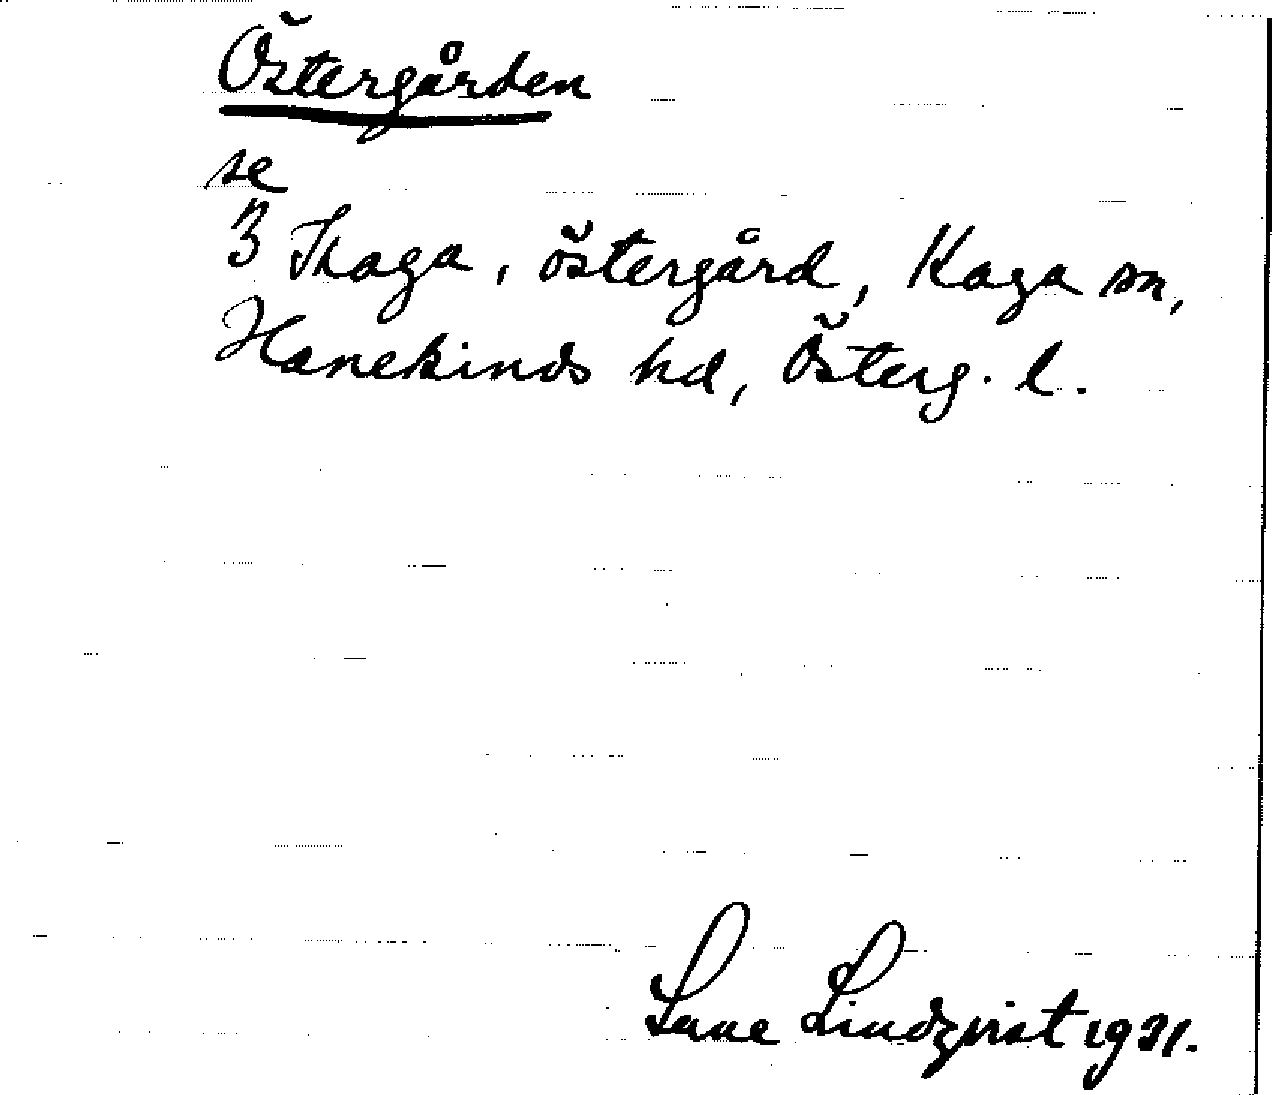 Östergården
se
3 Skaga, östergård, Kaga sn,
Hanekinds hd, Österg. l.
Sune Lindqvist 1921.